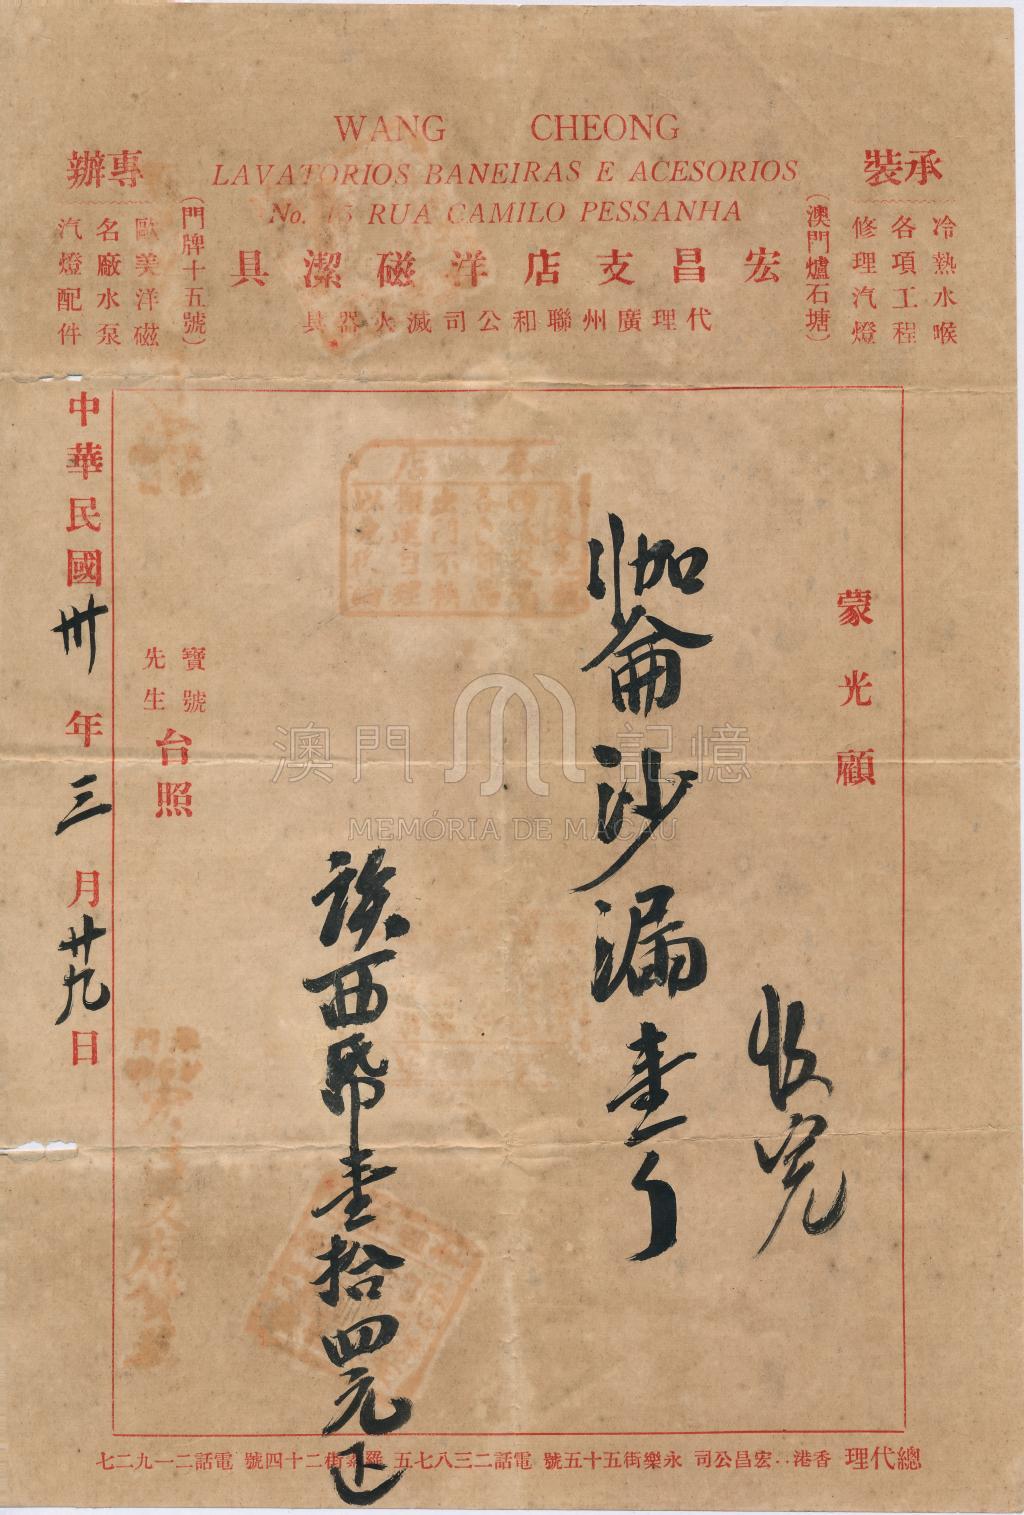 WANG CHEONG
LAVATORIOS BANEIRAS E ACESORIOS
No. 15 RUA CAMILO PESSANHA
宏昌支店洋磁潔具
代理廣州聯和公司滅火器具
承裝
冷熱水喉
各項工程
修理汽燈
(澳門爐石塘)
(門牌十五號)
專辦
歐美洋磁
名廠水泵
汽燈配件
蒙光顧
收完
伽侖沙漏壹个
西帋壹拾四元正
寶號
先生
台照
中華民國卅年三月廿九日
總代理 香港:宏昌公司 永樂街五十五號 電話二三八七五 街二十四號 電話二一九二七
澳門記憶
MEMÓRIA DE MACAU